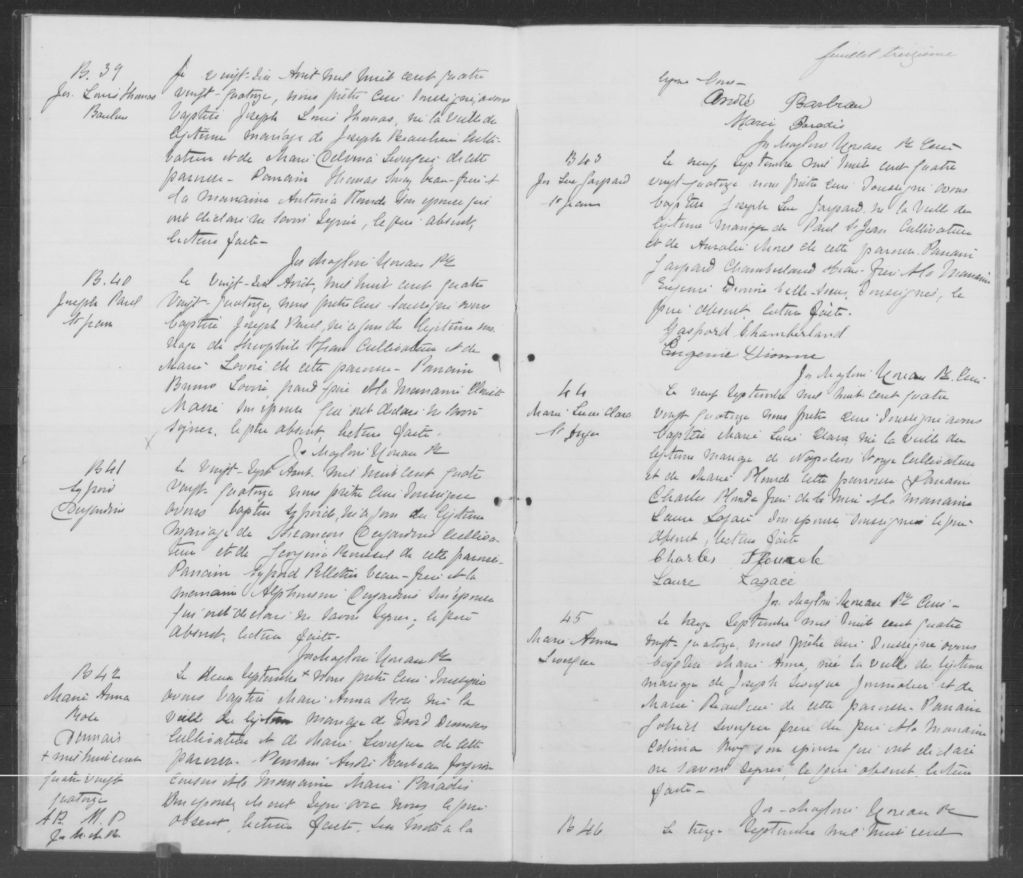 B. 39
Jos. Louis Thomas
Beaulieu
Le vingt-six Août mil huit cent quatre
vingt-quatorze, nous prêtre curé soussigné avons
baptisé Joseph Louis Thomas, né la veille du
légitime mariage de Joseph Beaulieu culti-
vateur et de Marie Delvina Levesque de cette
paroisse. Parrain Thomas beau-frère &
la Marraine Antonia son épouse qui
ont déclaré ne savoir signer, le père absent,
lecture faite.
Jos Magloire Moreau Ptr
B. 40
Joseph Paul
St Jean
Le vingt-six Août, mil huit cent quatre
vingt-quatorze, nous prêtre curé soussigné avons
baptisé Joseph Paul, né ce jour du légitime ma-
riage de Théophile St Jean cultivateur et de
Marie de cette paroisse. Parrain
Bruno grand père & la Marraine
Marie son épouse qui ont déclaré ne savoir
signer, le père absent, lecture faite.
Jos Magloire Moreau Ptr
B 41
Dejardins
Le vingt-sept Août, mil huit cent quatre
vingt-quatorze nous prêtre curé soussigné
avons baptisé né ce jour du légitime
mariage de François Dejardins cultiva-
teur et de de cette paroisse.
Parrain Pelletier beau-frère et la
marraine Alphonsine Dejardins son épouse
qui ont déclaré ne savoir signer, le père
absent, lecture faite.
Jos Magloire Moreau Ptr
B 42
Marie Anna
Rose
+ mil huit cent
quatre vingt
quatorze
A.B. M.P.
J. M. M. Ptr
Le deux Septembre + nous prêtre curé soussigné
avons baptisé Marie Anna Rose née la
veille du légitime mariage de
cultivateur et de Marie Levesque de cette
paroisse. Parrain André Barbeau
cousin & la Marraine Marie Paradis
son épouse, ils ont signé avec nous le père
absent, lecture faite.
feuillet treizième
ligne
André Barbeau
Marie Paradis
Jos Magloire Moreau Ptr Curé
B 43
Jos Luc Gaspard
St Jean
Le neuf Septembre mil huit cent quatre
vingt-quatorze nous prêtre curé soussigné avons
baptisé Joseph Luc Gaspard né la veille du
légitime mariage de Paul St Jean cultivateur
et de Aurélie Morel de cette paroisse. Parrain
Gaspard Chamberland beau-frère & la Marraine
Eugénie Dionne belle-soeur, soussignés, le
père absent lecture faite.
Gaspard Chamberland
Eugenie Dionne
Jos Magloire Moreau Ptr Curé
44
Marie Luce Clara
Le neuf Septembre mil huit cent quatre
vingt quatorze nous prêtre curé soussigné avons
baptisé Marie Luce Clara née la veille du
légitime mariage de Napoléon cultivateur
et de Marie de cette paroisse Parrain
Charles frère de la mère & la marraine
Laure Lagacé son épouse soussignés le père
absent, lecture faite
Charles
Laure Lagacé
Jos. Magloire Moreau Ptr Curé
45
Marie Anna
Levesque
Le treize Septembre mil huit cent quatre
vingt-quatorze, nous prêtre curé soussigné avons
baptisé Marie Anna, née la veille du légitime
mariage de Joseph Levesque journalier et de
Marie Beaulieu de cette paroisse Parrain
Levesque frère du père & la Marraine
son épouse qui ont déclaré
ne savoir signer, le père absent, lecture
faite.
Jos Magloire Moreau Ptr
B 46
Le treize Septembre mil huit cent